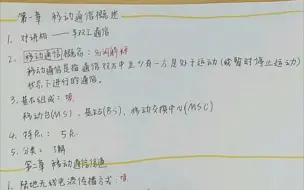 第一章 移动通信概述
1. 对讲机 —— 单双工通信
2. 移动通信概念：名词解释
移动通信是指通信双方中至少有一方是处于运动(或暂时停止运动)
状态下进行的通信。
3. 基本组成：填
移动台(MS)、基站(BS)、移动交换中心(MSC)
4. 特点：5点
5. 分类：了解
第二章 移动通信信道
1. 陆地无线电波传播方式：填